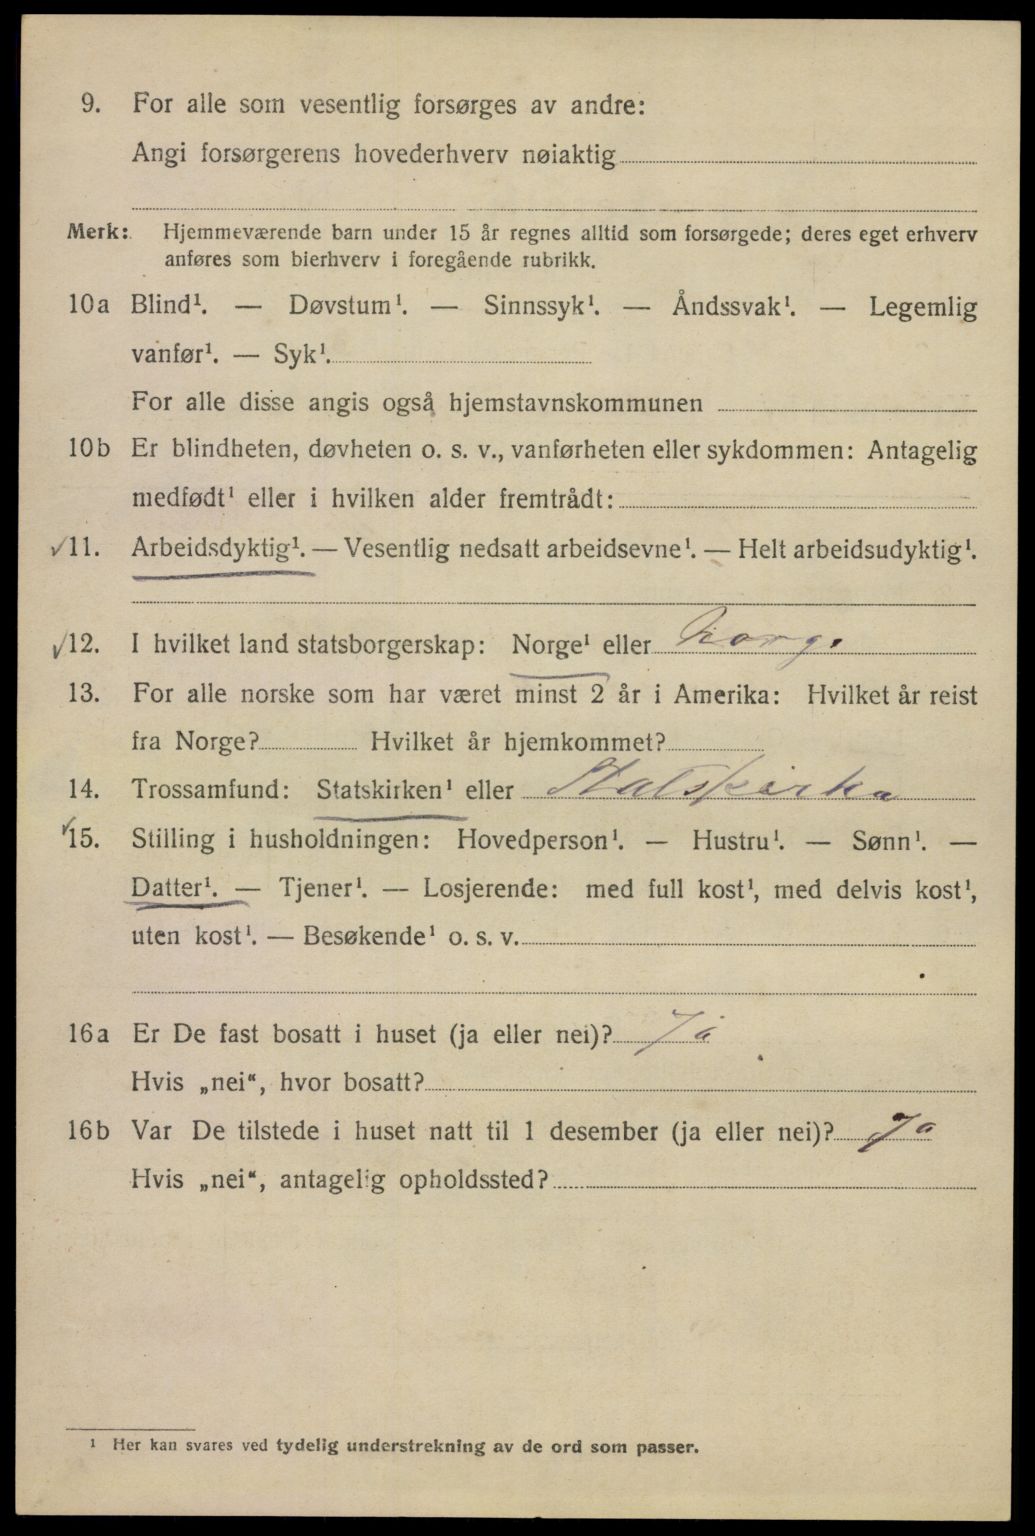 9. For alle som vesentlig forsørges av andre:
Angi forsørgerens hovederhverv nøiaktig
Merk: Hjemmeværende barn under 15 år regnes alltid som forsørgede; deres eget erhverv
anføres som bierhverv i foregående rubrikk.
10a Blind¹. — Døvstum¹. — Sinnssyk¹. — Åndssvak¹. — Legemlig
vanfør¹. — Syk¹.
For alle disse angis også hjemstavnskommunen
10b Er blindheten, døvheten o. s. v., vanførheten eller sykdommen: Antagelig
medfødt¹ eller i hvilken alder fremtrådt:
√11. Arbeidsdyktig¹. — Vesentlig nedsatt arbeidsevne¹. — Helt arbeidsudyktig¹.
√12. I hvilket land statsborgerskap: Norge¹ eller Norge
13. For alle norske som har været minst 2 år i Amerika: Hvilket år reist
fra Norge? Hvilket år hjemkommet?
14. Trossamfund: Statskirken¹ eller Statskirka
√15. Stilling i husholdningen: Hovedperson¹. — Hustru¹. — Sønn¹. —
Datter¹. — Tjener¹. — Losjerende: med full kost¹, med delvis kost¹,
uten kost¹. — Besøkende¹ o. s. v.
16a Er De fast bosatt i huset (ja eller nei)? Ja
Hvis „nei“, hvor bosatt?
16b Var De tilstede i huset natt til 1 desember (ja eller nei)? Ja
Hvis „nei“, antagelig opholdssted?
¹ Her kan svares ved tydelig understrekning av de ord som passer.